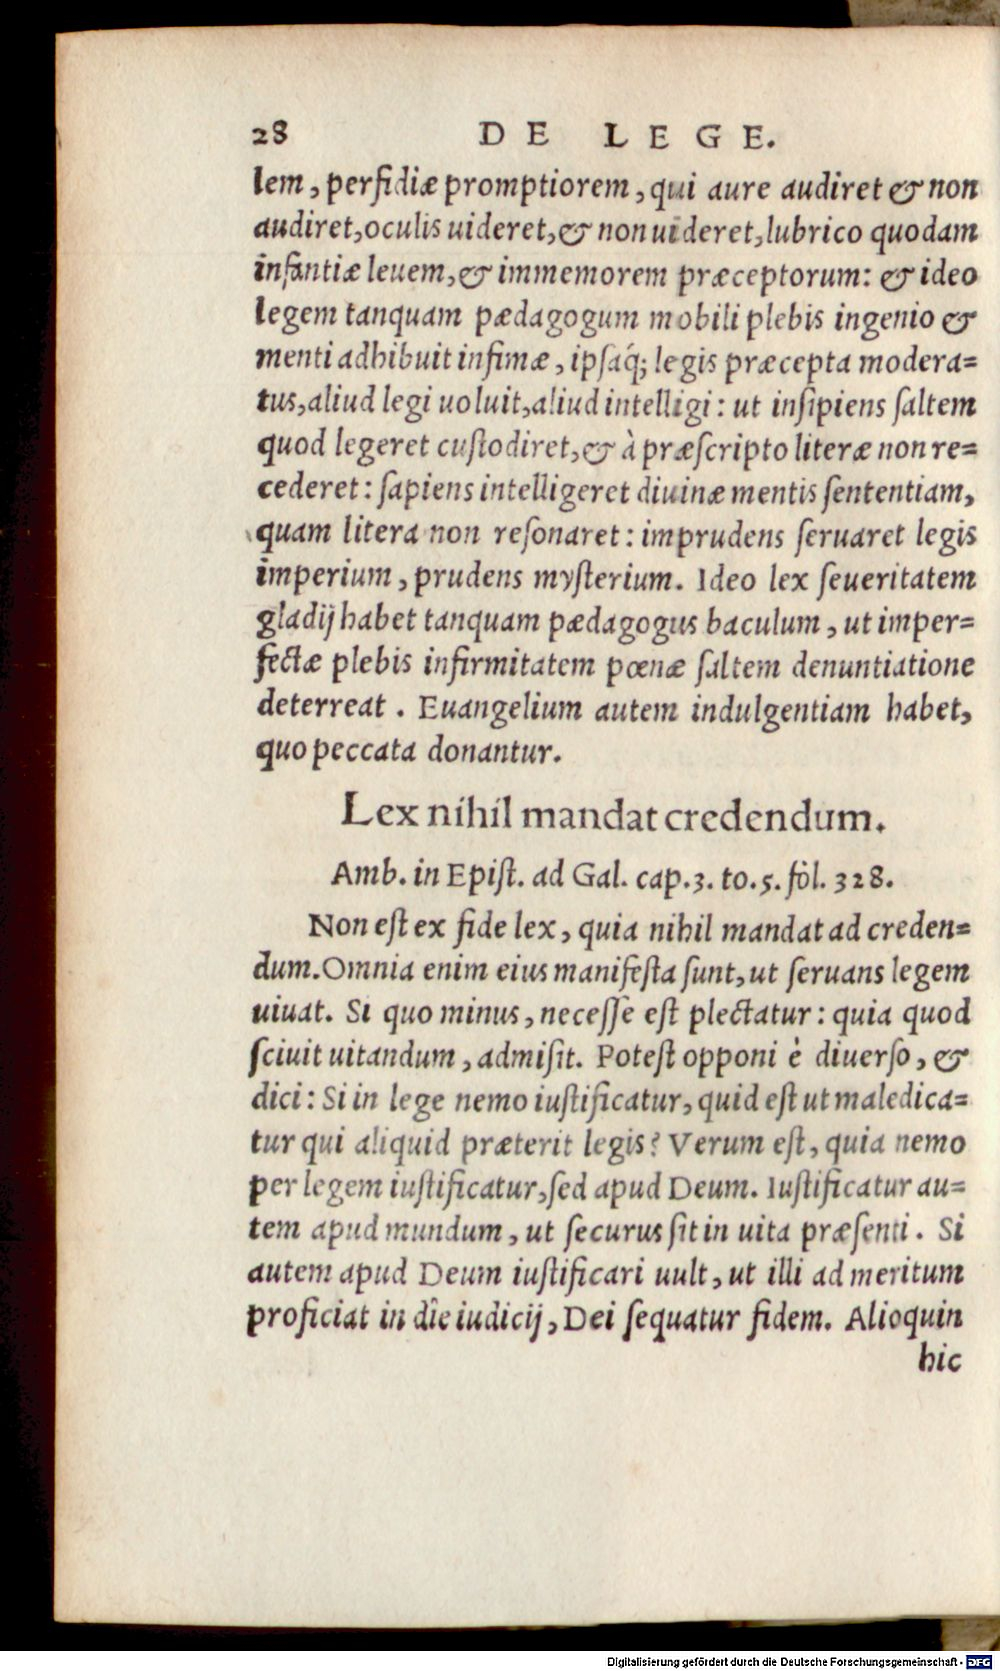 28 DE LEGE.
lem, perfidiæ promptiorem, qui aure audiret & non
audiret, oculis uideret, & non uideret, lubrico quodam
infantiæ leuem, & immemorem præceptorum: & ideo
legem tanquam pædagogum mobili plebis ingenio &
menti adhibuit infimæ, ipsaq́; legis præcepta modera=
tus, aliud legi uoluit, aliud intelligi: ut insipiens saltem
quod legeret custodiret, & à præscripto literæ non re=
cederet: sapiens intelligeret diuinæ mentis sententiam,
quam litera non resonaret: imprudens seruaret legis
imperium, prudens mysterium. Ideo lex seueritatem
gladij habet tanquam pædagogus baculum, ut imper=
fectæ plebis infirmitatem pœnæ saltem denuntiatione
deterreat. Euangelium autem indulgentiam habet,
quo peccata donantur.
Lex nihil mandat credendum.
Amb. in Epist. ad Gal. cap.3. to.5. fol. 328.
Non est ex fide lex, quia nihil mandat ad creden=
dum. Omnia enim eius manifesta sunt, ut seruans legem
uiuat. Si quo minus, necesse est plectatur: quia quod
sciuit uitandum, admisit. Potest opponi è diuerso, &
dici: Si in lege nemo iustificatur, quid est ut maledica=
tur qui aliquid præterit legis? Verum est, quia nemo
per legem iustificatur, sed apud Deum. Iustificatur au=
tem apud mundum, ut securus sit in uita præsenti. Si
autem apud Deum iustificari uult, ut illi ad meritum
proficiat in die iudicij, Dei sequatur fidem. Alioquin
hic
Digitalisierung gefördert durch die Deutsche Forschungsgemeinschaft - DFG